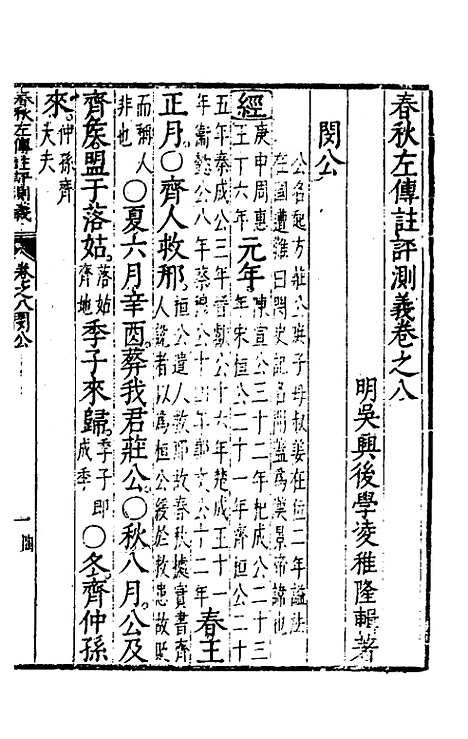 春秋左傳註評測義卷之八
明吳興後學凌稚隆輯著
閔公
公名啟方莊公庶子母叔姜在位二年諡法
在國遭難曰閔史記名開蓋為漢景帝諱也
經
庚申周惠
王十六年
元年
陳宣公三十二年杞成公二十三
年宋桓公二十一年齊桓公二十
五年秦成公三年晉獻公十六年楚成王十一
年衛懿公八年蔡穆公十四年鄭文公十二年
春王
正月○齊人救邢
桓公遣人救邢故春秋據實書齊
人說者以為桓公緩於救患故貶
而稱人
非也
○夏六月辛酉葬我君莊公○秋八月公及
齊侯盟于落姑
落姑
齊地
季子來歸
季子即
成季
○冬齊仲孫
來
仲孫齊
大夫
春秋左傳註評測義
卷之八閔公
一